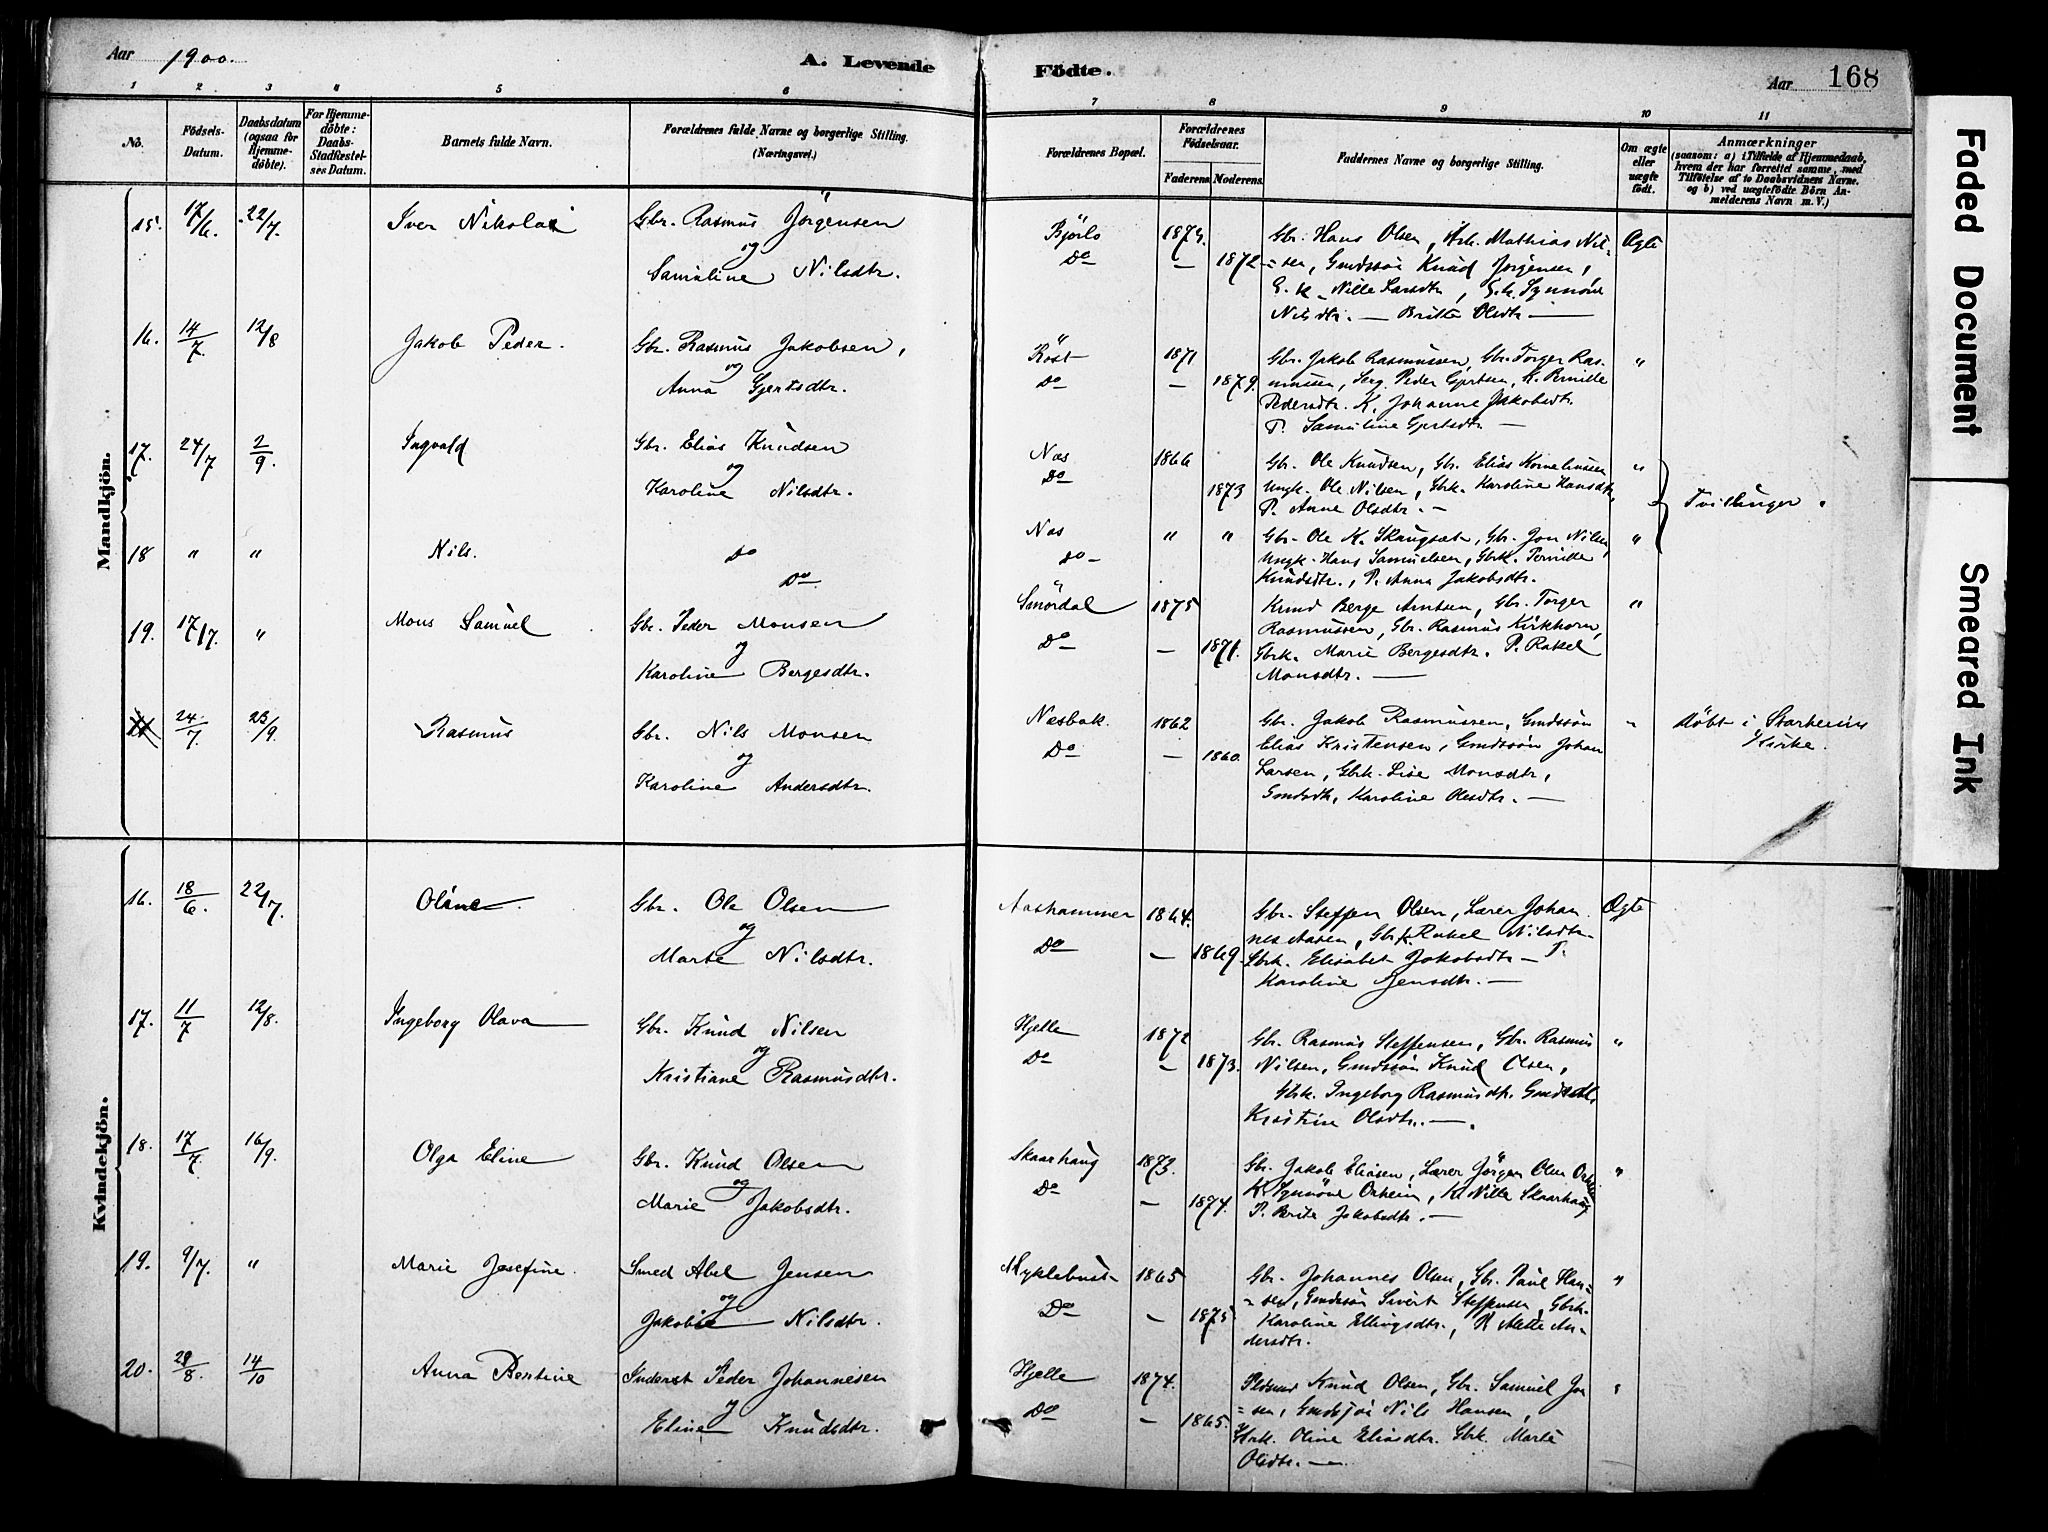 Aar 1900.
A. Levende Födte.
Aar 168
1 2 3 4 5 6 7 8 9 10 11
No.
Födsels-Datum.
Daabsdatum (ogsaa for Hjemmedöbte).
For Hjemmedöbte: Daabs-Stadfæstelses Datum.
Barnets fulde Navn.
Forældrenes fulde Navne og borgerlige Stilling. (Næringsvei.)
Forældrenes Bopæl.
Forældrenes Födselsaar.
Faderens. Moderens.
Faddernes Navne og borgerlige Stilling.
Om ægte eller uægte födt.
Anmærkninger
(saasom: a) i Tilfælde af Hjemmedaab, hvem der har forrettet samme, med Tilföielse af to Daabsvidners Navne. og b) ved uægtefödte Börn Anmelderens Navn m. V.)
Mandkjön.
15. 17/6. 22/7. Iver Nikolai Gbr. Rasmus Jörgensen Björlo 1873. Gbr. Hans Olsen, Mathias Nil- Ægte
og Do — 1872 =sen, Gmdssön Knud Jörgensen,
Samuline Nilsdtr. G. k. Nille Larsdtr, G.k. Synnöve
Nilsdtr. — Britte Olsdtr —
16. 14/7. 12/8 Jakob Peder. Gbr. Rasmus Jakobsen, Röst 1871 Gbr. Jakob Rasmussen, Gbr. Torger Ras- "
og Do — 1879. mussen, Serg. Peder Gjertsen, K. Pernille
Anna Gjertsdtr. Pedersdtr. K. Johanne Jakobsdtr.
P. Samuline Gjertsdtr —
17. 24/7 2/9. Ingvald Gbr. Elias Knudsen Nos 1866 Gbr. Ole Knudsen, Gbr. Elias Korneliussen "
og Do 1873 Ungk. Ole Nilsen, Gbrk. Karoline Hansdtr, Tvillinger.
Karoline Nilsdtr. P. Anne Olsdtr. —
18 " " Nils. Do Nos " " Gbr. Ole K. Skaugsæt, Gbr. Jon Nilsen, "
Do do — Ungk. Hans Samuelsen, Gbrk. Pernille
Knudsdtr., P. Anna Jakobsdtr.
19. 17/7. " Mons Samuel Gbr. Peder Monsen Smördal 1875 Knud Berge Arntsen, Gbr. Torger "
og Do — 1871. Rasmussen, Gbr. Rasmus Kirkhorn,
Karoline Bergesdtr. Gbrk. Marie Bergesdtr. P. Rakel
Monsdtr. —
24/7. 23/9. Rasmus Gbr. Nils Monsen Nesbak. 1862 Gbr. Jakob Rasmussen, Gmdssön " Döbt i Starheim
og Do — 1860. Elias Kristensen, Gmdssön Johan Kirke.
Karoline Andersdtr. Larsen, Gbrk. Lise Monsdtr,
Gmdsdtr, Karoline Olesdtr. —
Kvindekjön.
16. 18/6. 22/7. Oline Gbr. Ole Olsen Aashammer 1864. Gbr. Steffen Olsen, Lærer Johan Ægte
og Do — 1869. nes Aasen, Gbrk. Rakel Nilsdtr.
Marte Nilsdtr. Gbrk. Elisabet Jakobsdtr — P.
Karoline Jensdtr. —
17. 11/7 12/8. Ingeborg Olava Gbr. Knud Nilsen Hjelle 1872 Gbr. Rasmus Steffensen, Gbr. Rasmus "
og Do — 1873. Nilsen, Gmdssön Knud Olsen,
Kristiane Rasmusdtr. Gbrk. Ingeborg Rasmusdtr. Gmdsdtr.
Kristine Olsdtr. —
18. 17/7. 16/9. Olga Eline Gbr. Knud Olsen Skaarhaug 1873. Gbr. Jakob Eliasen, Lærer Jörgen Olsen Orheim "
og Do — 1874. K. Synnöve Orheim, K. Nille Skaarhaug
Marie Jakobsdtr. P. Brite Jakobsdtr. —
19. 9/7. " Marie Josefine. Smed Abel Jensen Myklebust 1865 Gbr. Johannes Olsen, Gbr. Paul Han- "
og Do — 1875 =sen, Gmdssön Sivert Steffensen, Gbrk.
Jakobie Nilsdtr. Karoline Ellingsdtr., Alette An-
dersdtr.
20. 29/8. 14/10 Anna Bertine Inderst Peder Johannesen Hjelle 1874. Knud Olsen, Gbr. Samuel Jon "
og Do — 1865. =sen, Gmdssön Nils Hansen,
Eline Knudsdtr. Gbrk. Oline Eliasdtr. Gbrk. Marte
Olsdtr. —
Faded Document
Smeared Ink